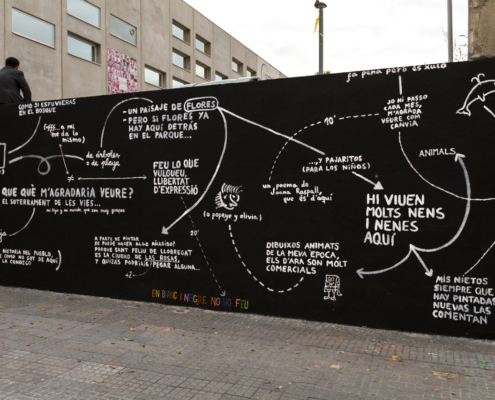 COMO SI ESTUVIERAS
EN EL BOSQUE
(¡¡¡...a mí
me da lo
mismo)
de árboles
o de playa
QUÈ M'AGRADARIA VEURE?
EL SOTERRAMENT DE LES VIES...
HISTORIA DEL PUEBLO,
NO SOY DE AQUÍ
LA CONOZCO)
-UN PAISAJE DE FLORES
-PERO SI FLORES YA
HAY AQUÍ DETRÁS
EN EL PARQUE...
FEU LO QUE
VULGUEU,
LLIBERTAT
D'EXPRESSIÓ
(a popeye y olivia)
A PARTE DE PINTAR
SE PUEDE HACER ALGO AÑADIDO?
PORQUE SANT FELIU DE LLOBREGAT
ES LA CIUDAD DE LAS ROSAS,
Y QUIZÁS PODRÍAIS PEGAR ALGUNA...
20'
EN BLANC I NEGRE NO HO FEU
10'
...Y PAJARITOS
(PARA LOS NIÑOS)
un poema de
Joana Raspall,
que és d'aquí
DIBUIXOS ANIMATS
DE LA MEVA ÈPOCA,
ELS D'ARA SON MOLT
COMERCIALS
fa pena però és xulo
JO HI PASSO
CADA MES,
M'AGRADA
VEURE COM
CANVIA
ANIMALS
HI VIUEN
MOLTS NENS
I NENES
AQUÍ
MIS NIETOS
SIEMPRE QUE
HAY PINTADAS
NUEVAS LAS
COMENTAN